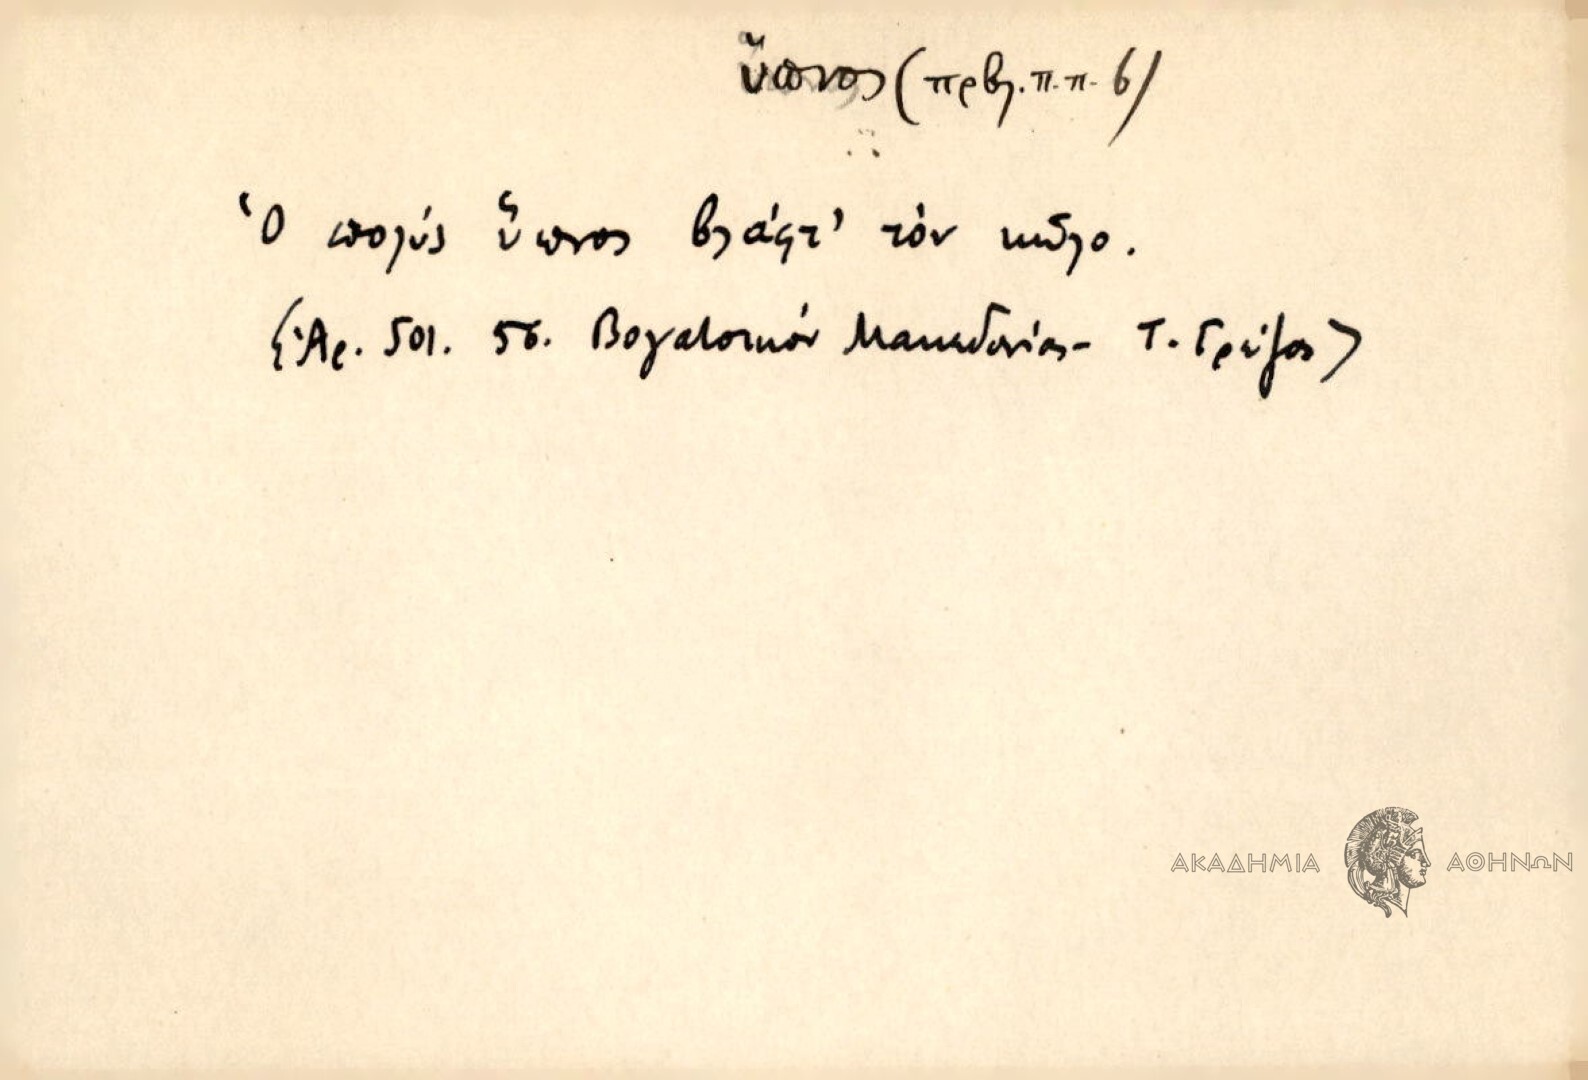 ὕπνος (πρβλ. π.π. 6)
Ὁ πολύς ὕπνος βλάφτ' τὸν
(Ἀρ. 501. 56. Βογατσικόν Μακεδονίας - Τ. Γρίζος)
ΑΚΑΔΗΜΙΑ ΑΘΗΝΩΝ